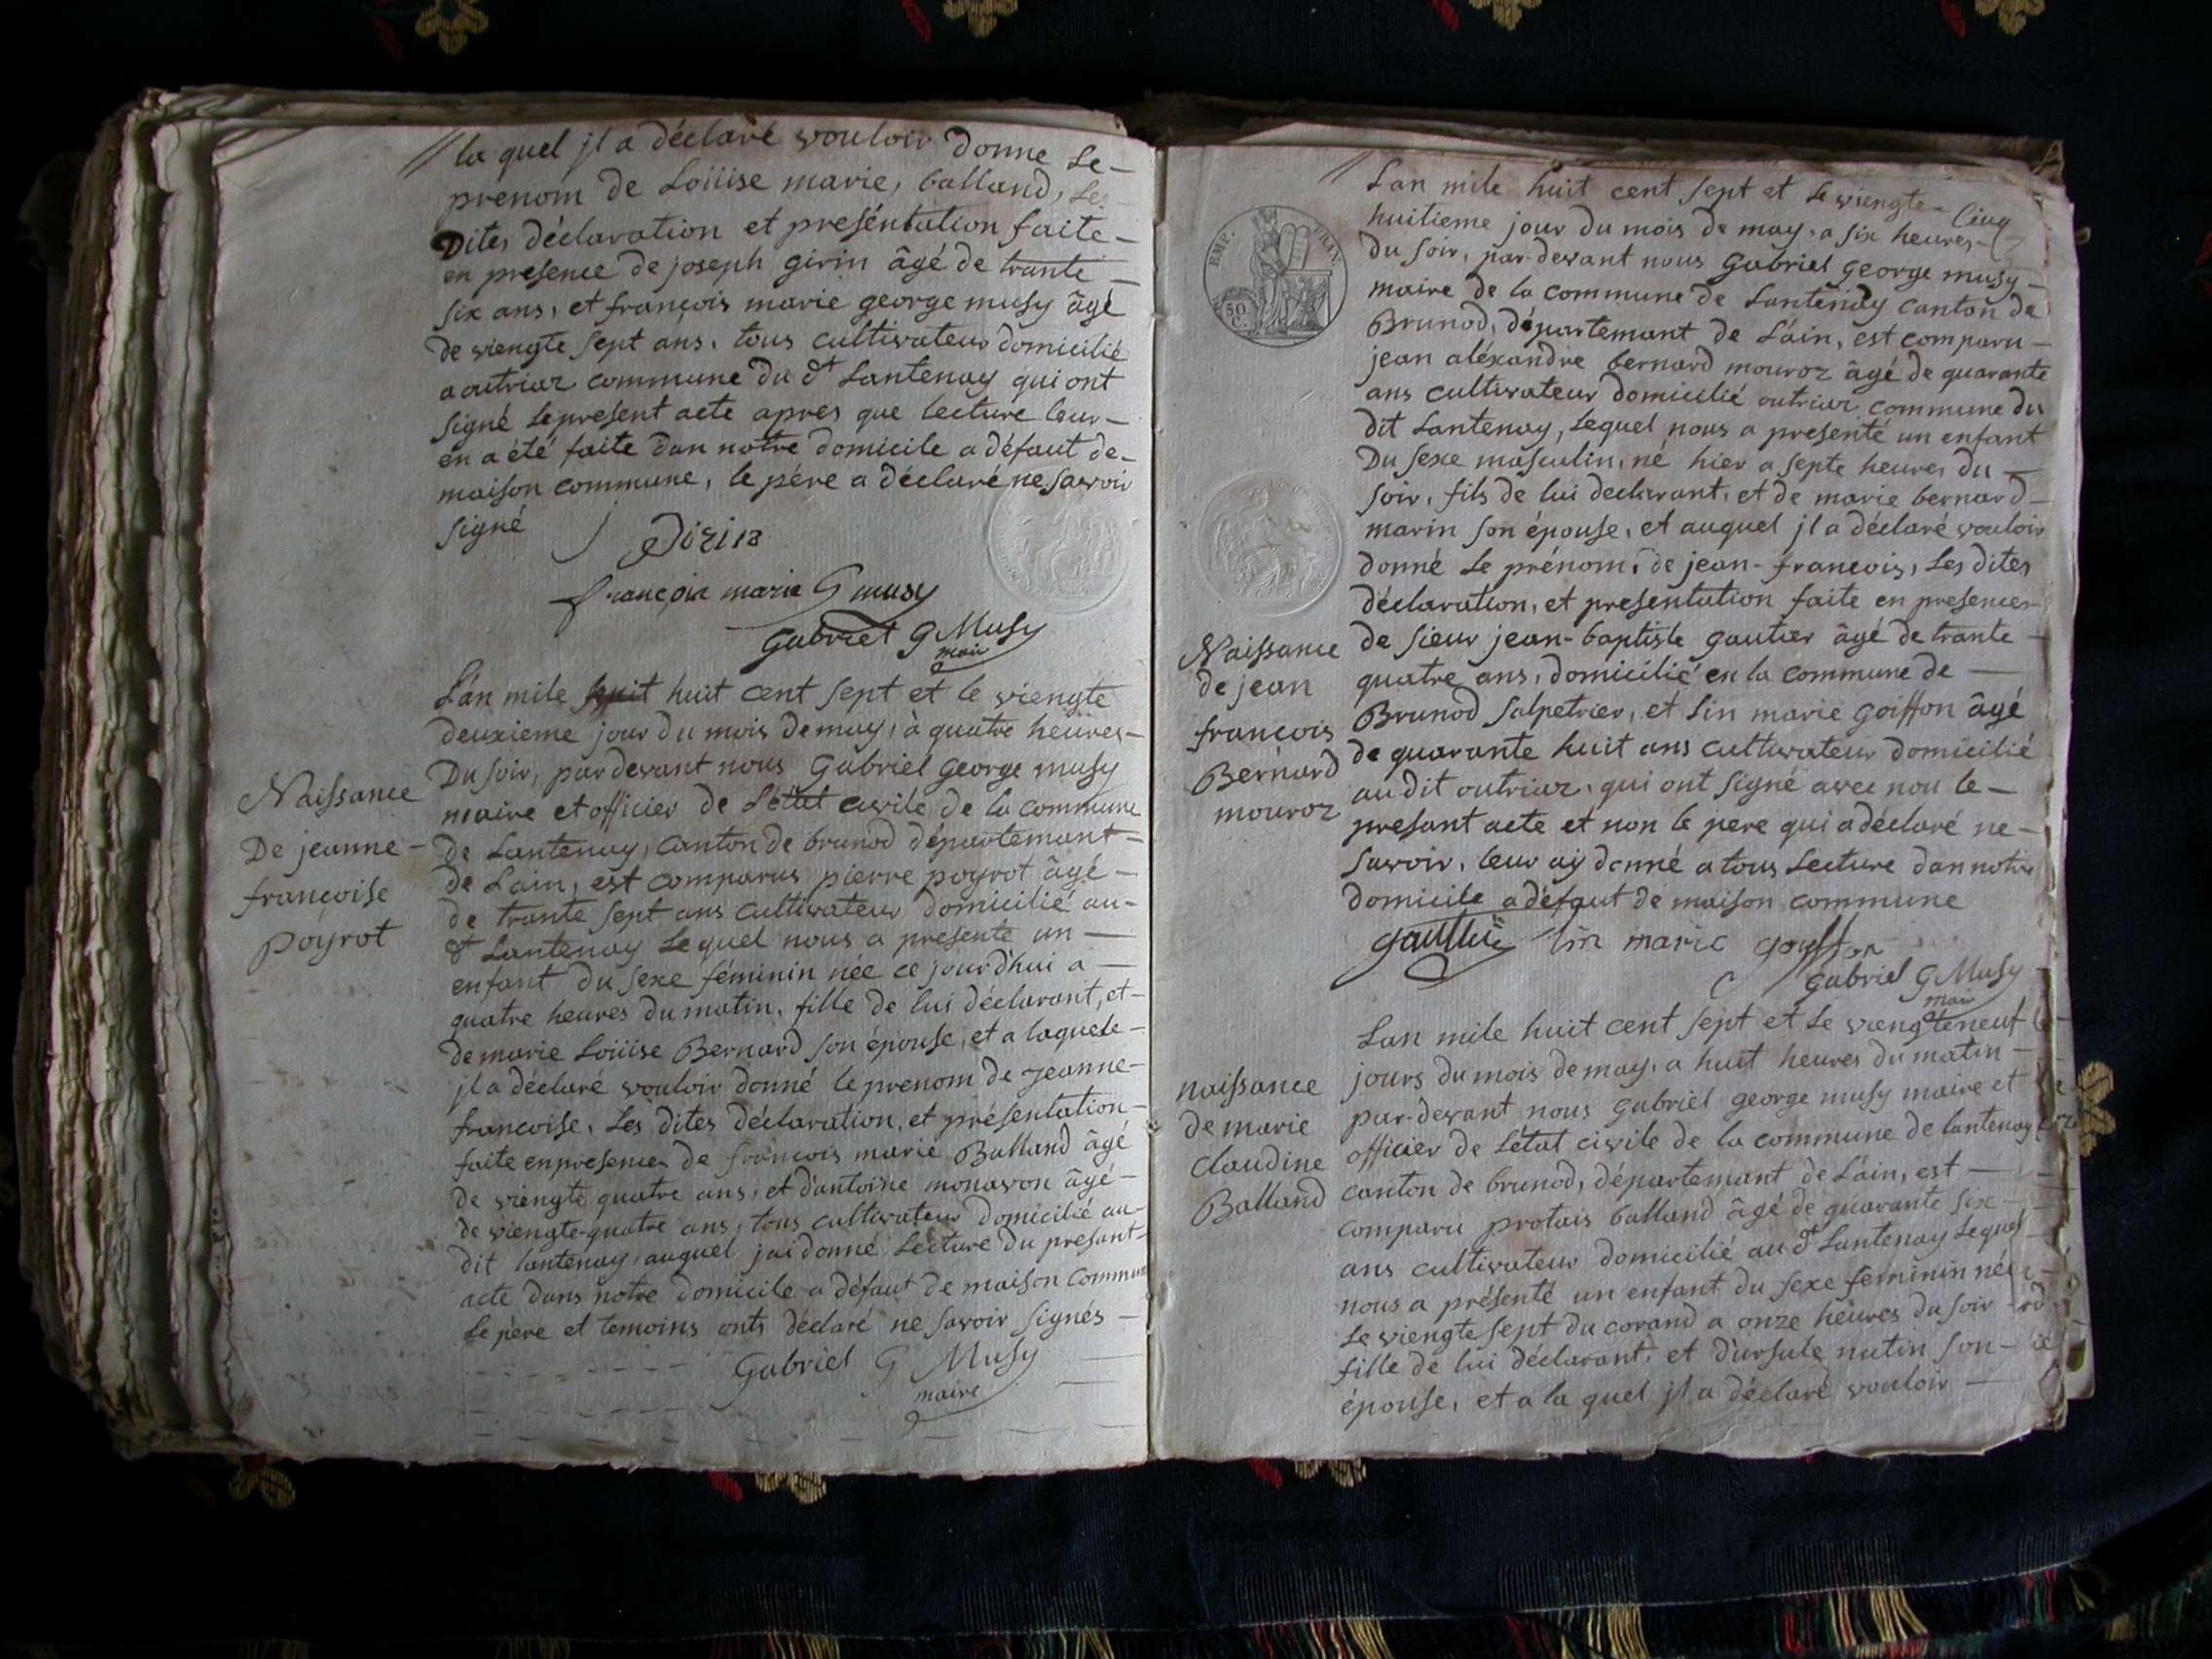 la quel jl a déclaré vouloir donne le-
prenom de Loüise marie, balland, les
Dites déclaration et presentation faite-
en presence de joseph girin âgé de trante
six ans, et françois marie george musy âgé
de viengte sept ans, tous cultivateur domicilié
a outriaz commune du dt Lantenay qui ont
signé le present acte apres que lecture leur-
en a été faite dan notre domicile a défaut de-
maison commune, le pére a déclaré ne savoir
signé
françois marie G musy
Gabriel G Musy
mair
Naissance
De jeanne-
françoise
poyrot
L'an mile huit cent sept et le viengte
deuxieme jour du mois de may, à quatre heures-
Du soir, par devant nous Gabriel George musy
maire et officier de L'état civile de la commune
de Lantenay, canton de brunod département-
de Lain, est comparus pierre poyrot âgé-
de trante sept ans cultivateur domicilié au-
dt Lantenay Lequel nous a presenté un-
enfant du sexe féminin née ce jourd'hui a-
quatre heures du matin, fille de lui déclarant, et-
de marie Loüise Bernard son épouse, et a laquele-
jl a déclaré vouloir donné le prenom de jeanne-
francoise, Les dites déclaration, et présentation-
faite en presences de francois marie Balland âgé
de viengte quatre ans, et d'antoine monavon âgé-
de viengte-quatre ans, tous cultivateur domicilié au-
dit lantenay, auquel jai donné Lecture du presant-
acte dans notre domicile a défaut de maison commune
Le père et temoins onts déclaré ne savoir signés-
Gabriel G Musy
maire
EMP. FRAN.
50
C.
Naissance
de jean
françois
Bernard
mouroz
Lan mile huit cent sept et le viengte-
huitieme jour du mois de may, a six heures-
du soir, par-devant nous Gabriel George musy-
maire de la commune de Lantenay canton de
Brunod, département de L'ain, est comparu-
jean aléxandre bernard mouroz âgé de quarante cinq
ans cultivateur domicilié outriaz commune du
dit Lantenay, Lequel nous a presenté un enfant
Du sexe masculin, né hier a septe heures du-
soir, fils de lui declarant, et de marie bernard-
marin son épouse, et auquel jl a déclaré vouloir
donné le prénom, de jean-francois, Les dites
déclaration, et presentation faite en presences
de sieur jean-baptiste gautier âgé de trante-
quatre ans, domicilié en la commune de-
Brunod salpetrier, et Lin marie goiffon âgé
de quarante huit ans cultivateur domicilié
au dit outriaz, qui ont signé avec nou le-
presant acte et non le pere qui a déclaré ne-
savoir, leur ay donné a tous Lecture dan notre
domicile a défaut de maison commune
lin marie goiffon
Gabriel G Musy
mair
naissance
de marie
claudine
Balland
Lan mile huit cent sept et le viengteneuf
jours du mois de may, a huit heures du matin-
par-devant nous Gabriel george musy maire et
officier de L'état civile de la commune de lantenay
canton de brunod, département de L'ain, est-
comparu protais balland âgé de quarante six-
ans cultivateur domicilié au dt Lantenay Lequel
nous a présenté un enfant du sexe feminin née
Le viengte sept du corand a onze heures du soir
fille de lui déclarant, et d'ursule nutin son-
épouse, et a la quel jl a déclaré vouloir-